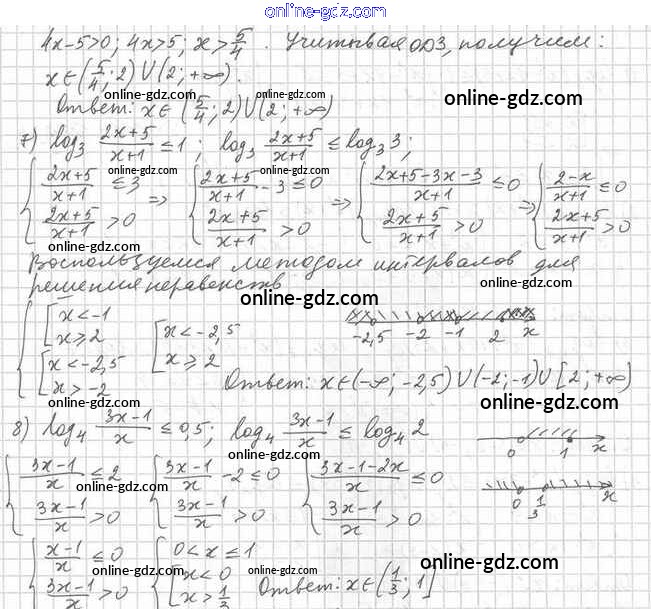 online-gdz.com
4x-5>0; 4x>5; x>5/4. Учитывая ОДЗ, получим:
online-gdz.com
x∈(5/4; 2)∪(2; +∞).
online-gdz.com
Ответ: x∈(5/4; 2)∪(2; +∞)
online-gdz.com
7) log₃ (2x+5)/(x+1) ≤ 1; log₃ (2x+5)/(x+1) ≤ log₃ 3;
{ (2x+5)/(x+1) ≤ 3 ⇒ { (2x+5)/(x+1) - 3 ≤ 0 ⇒ { (2x+5-3x-3)/(x+1) ≤ 0 ⇒ { (2-x)/(x+1) ≤ 0
(2x+5)/(x+1) > 0 (2x+5)/(x+1) > 0 (2x+5)/(x+1) > 0 (2x+5)/(x+1) > 0
online-gdz.com online-gdz.com
Воспользуемся методом интервалов для
решения неравенств
online-gdz.com online-gdz.com
{ [ x<-1 [ x<-2,5
x≥2 x≥2
-2,5 -2 -1 2 x
[ x<-2,5
x>-2
online-gdz.com
Ответ: x∈(-∞; -2,5)∪(-2; -1)∪[2; +∞)
online-gdz.com
8) log₄ (3x-1)/x ≤ 0,5; log₄ (3x-1)/x ≤ log₄ 2
online-gdz.com
0 1 x
{ (3x-1)/x ≤ 2 { (3x-1)/x - 2 ≤ 0 { (3x-1-2x)/x ≤ 0
(3x-1)/x > 0 (3x-1)/x > 0 (3x-1)/x > 0
online-gdz.com
0 1/3 x
online-gdz.com
{ (x-1)/x ≤ 0 { 0<x≤1
(3x-1)/x > 0 [ x<0
x>1/3
online-gdz.com
online-gdz.com
Ответ: x∈(1/3; 1]
online-gdz.com